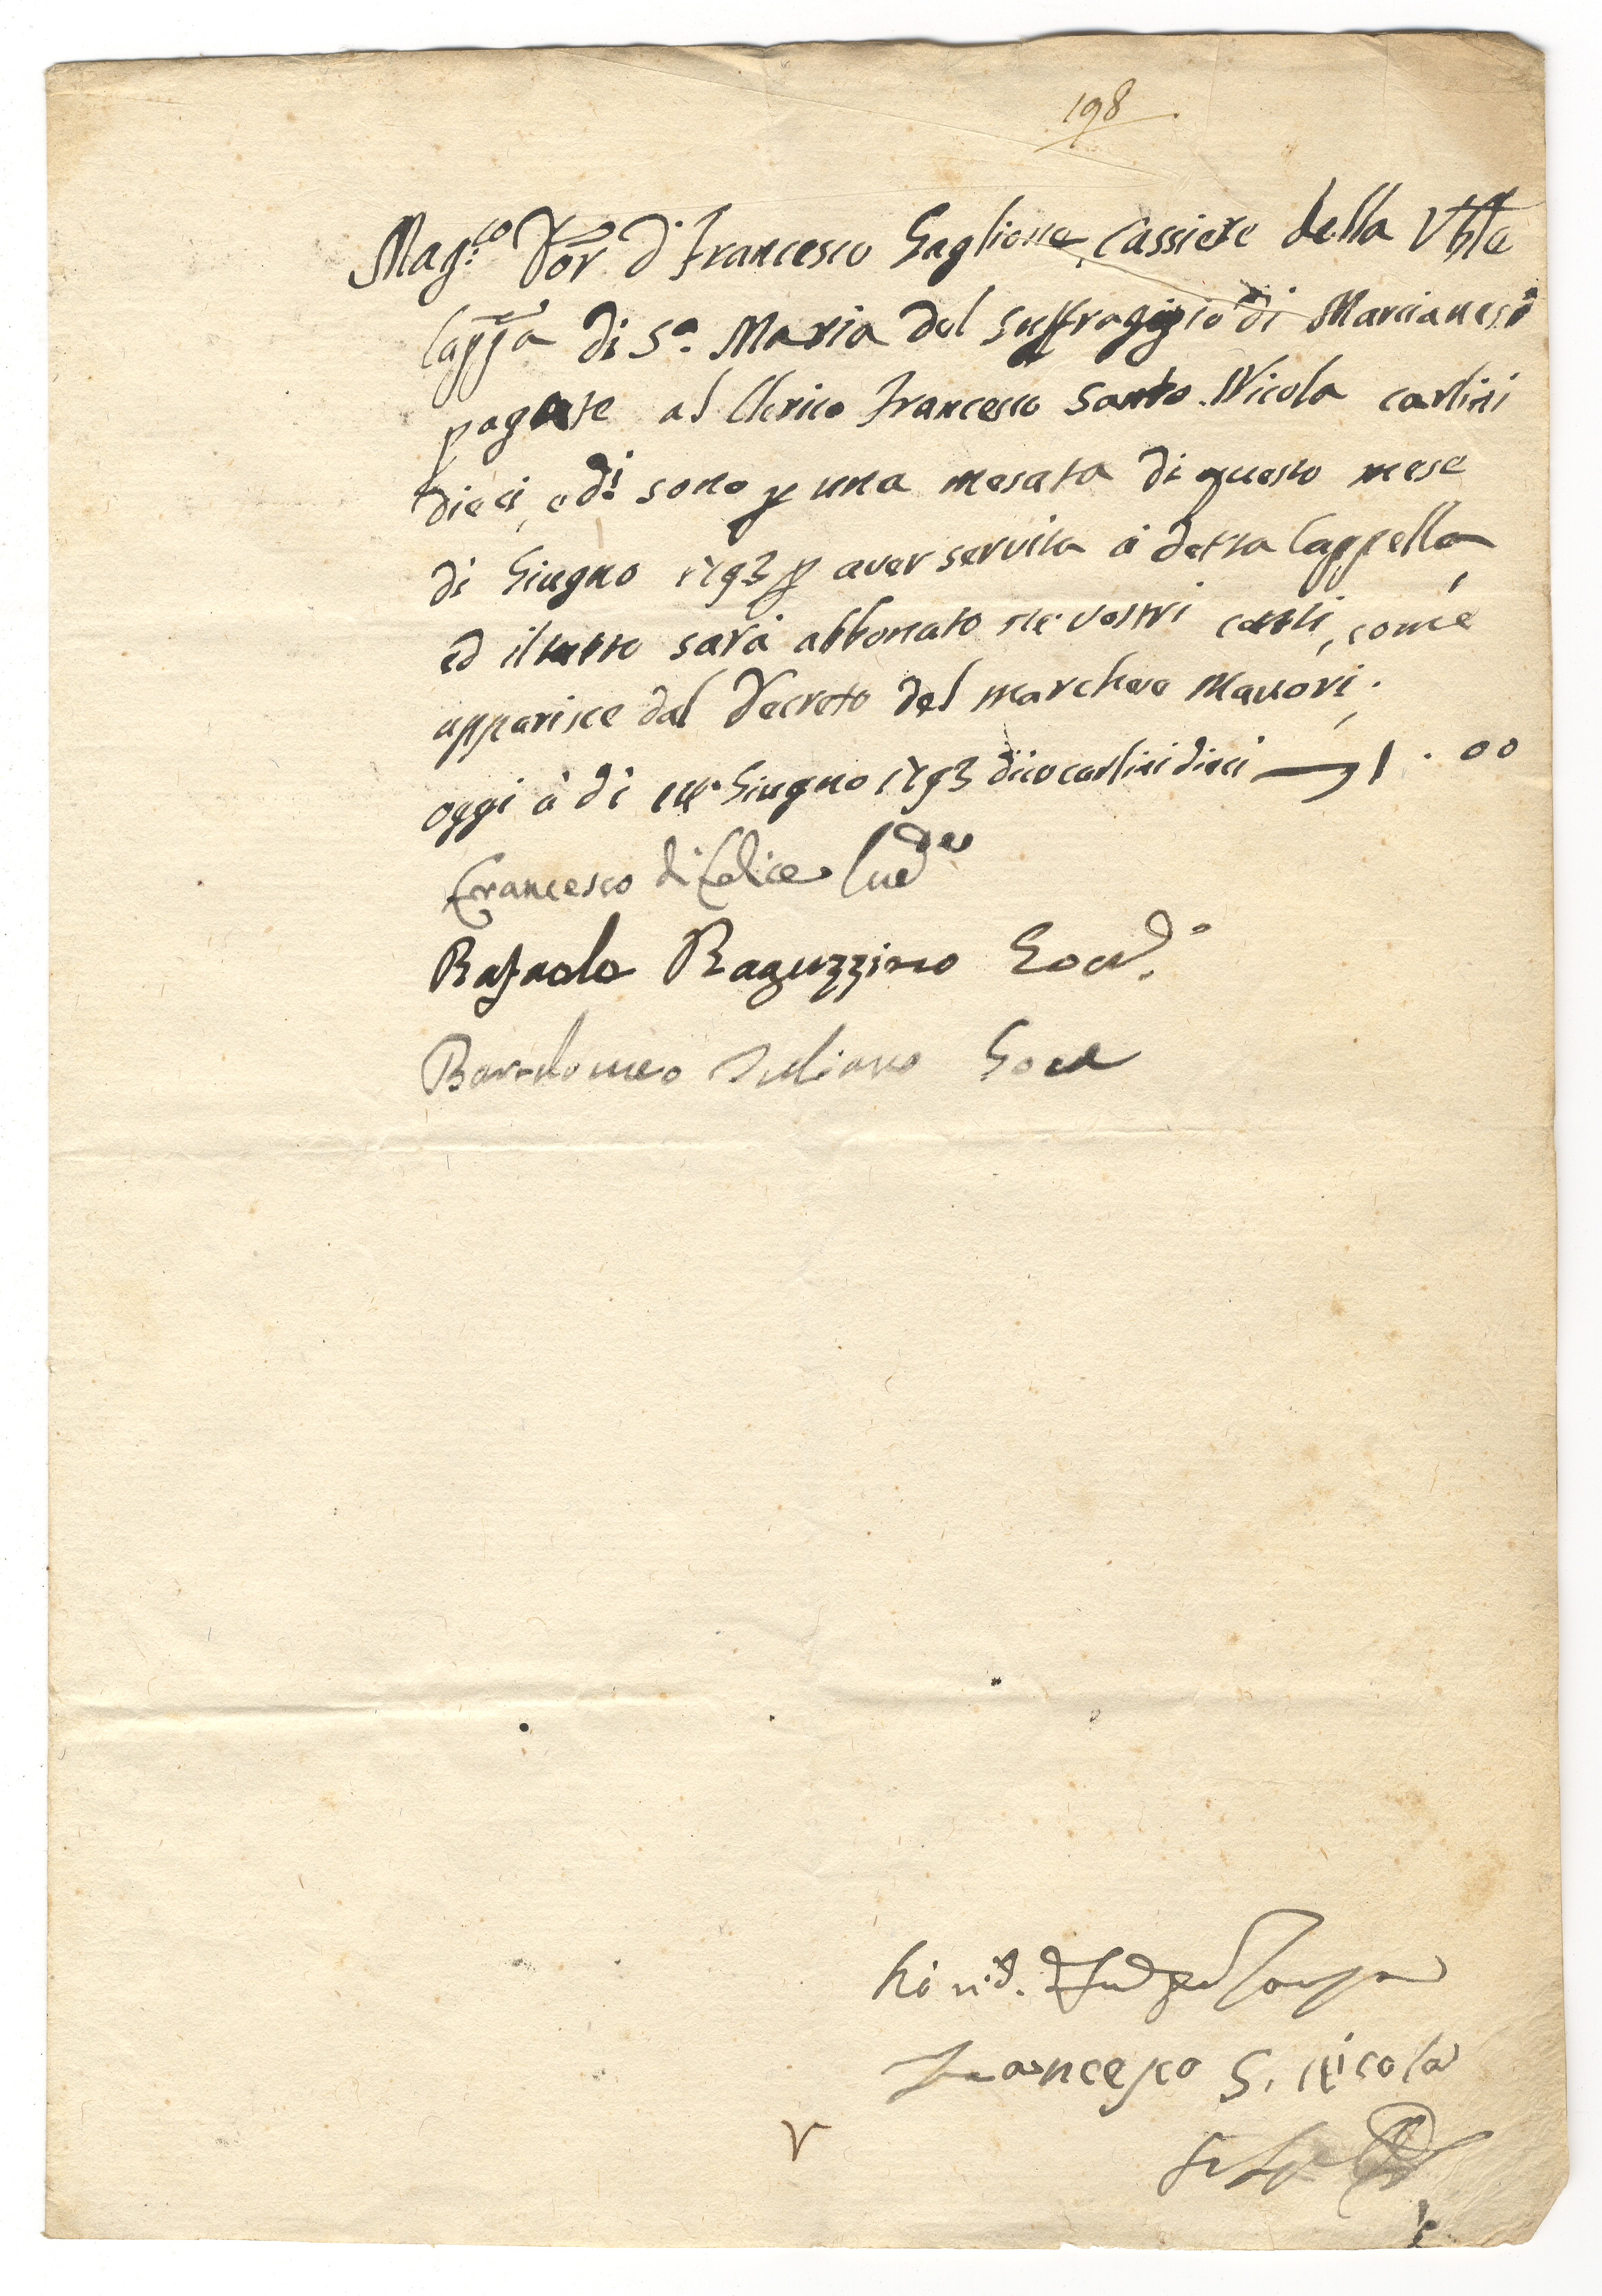 198
Mag:co Dor D. Francesco Gaglione Cassiere della Vble
Cappa di Sa. Maria del suffraggio di Marcianesi
pagate al Clerico Francesco Santo Nicola carlini
dieci, e di sono p una mesata di questo mese
di Giugno 1793 p aver servita à detta Cappella
ed il tutto sarà abbonato ne vostri conti, come
apparisce dal Decreto del marchese Mauori.
oggi à di Giugno 1793 dico carlini dieci 1.00
Francesco di Felice
Rafaele Raguzzino Gov.o
Bartolomeo Iuliano Gov
Francesco S. Nicola